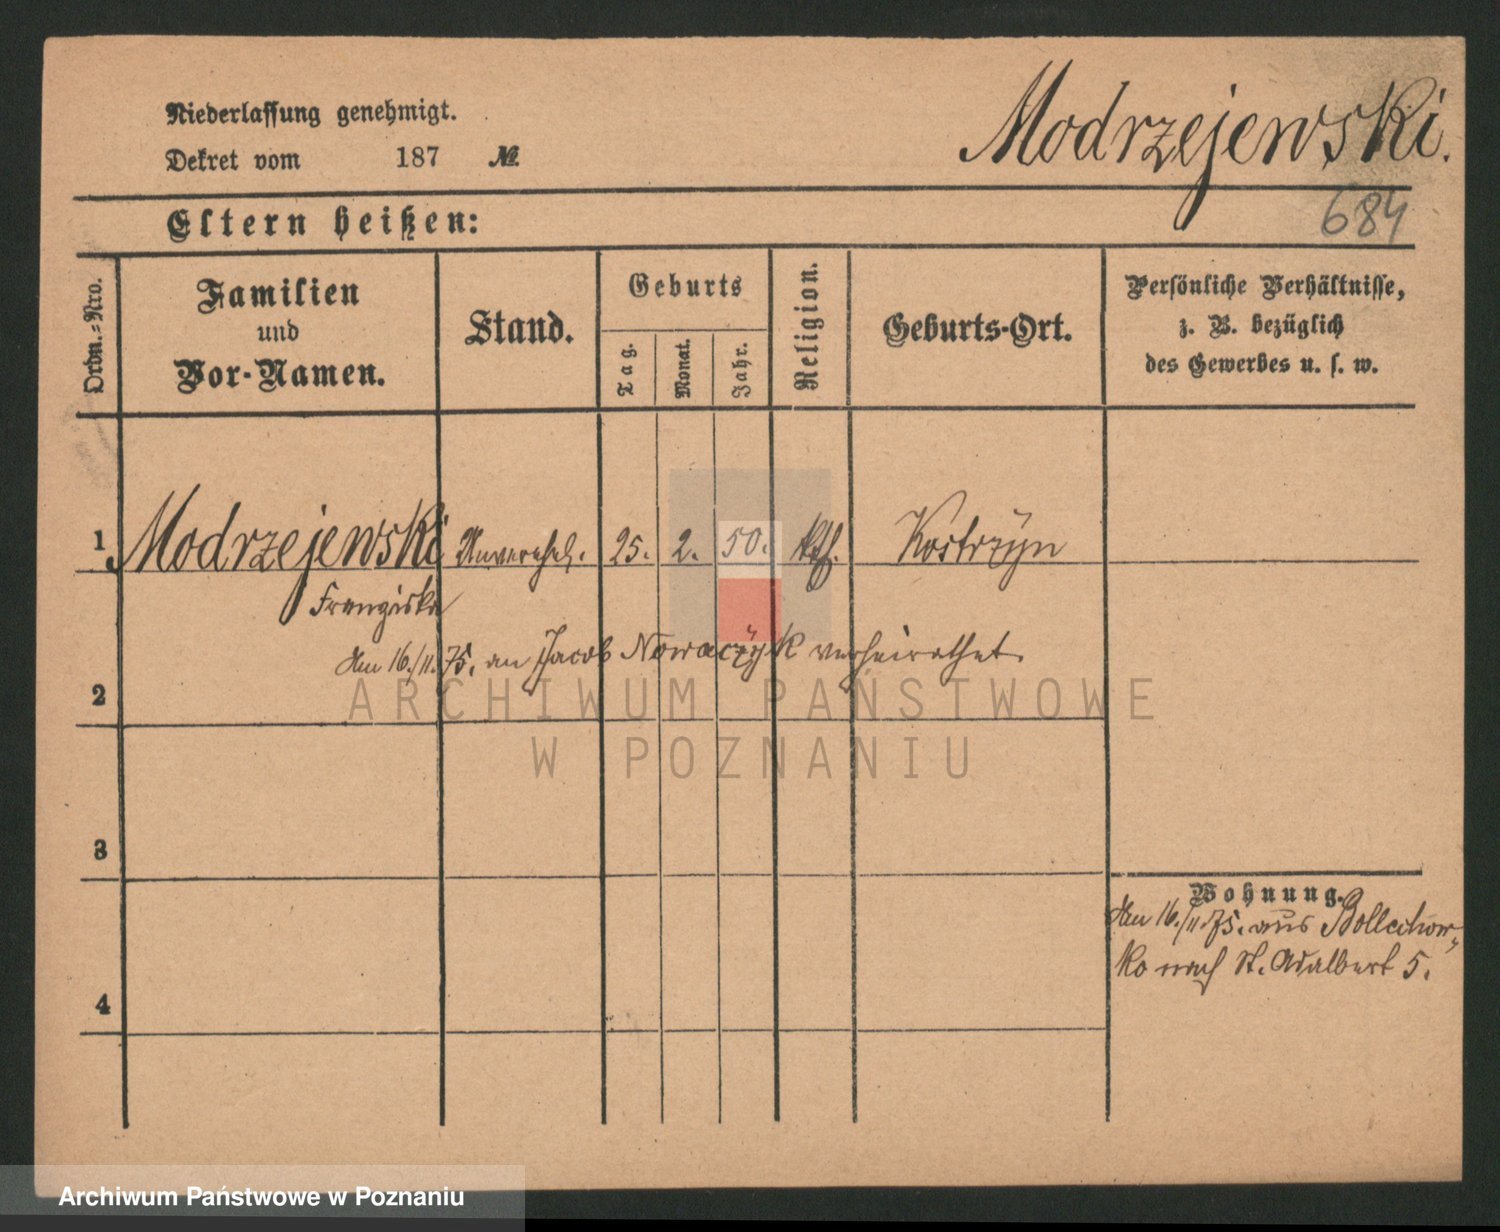 Niederlassung genehmigt.
Dekret vom 187 №
Modrzejewski.
684
Eltern heißen:
Ordn.-Nro.
Familien
und
Vor-Namen.
Stand.
Geburts
Tag.
Monat.
Jahr.
Religion.
Geburts-Ort.
Persönliche Verhältnisse,
z. B. bezüglich
des Gewerbes u. s. w.
1 Modrzejewski Unverehel. 25. 2. 50. kth. Kostrzyn
Franziska
Am 16./11. 75. an Jacob Nowaczyk verheirathet.
2
ARCHIWUM PAŃSTWOWE
W POZNANIU
3
Wohnung.
Am 16./11. 75. aus Bollechow-
ko nach St. Adalbert 5.
4
Archiwum Państwowe w Poznaniu